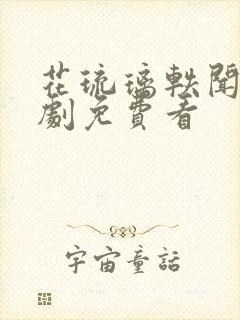 花琉璃軼聞
劇免費看
宇宙童話